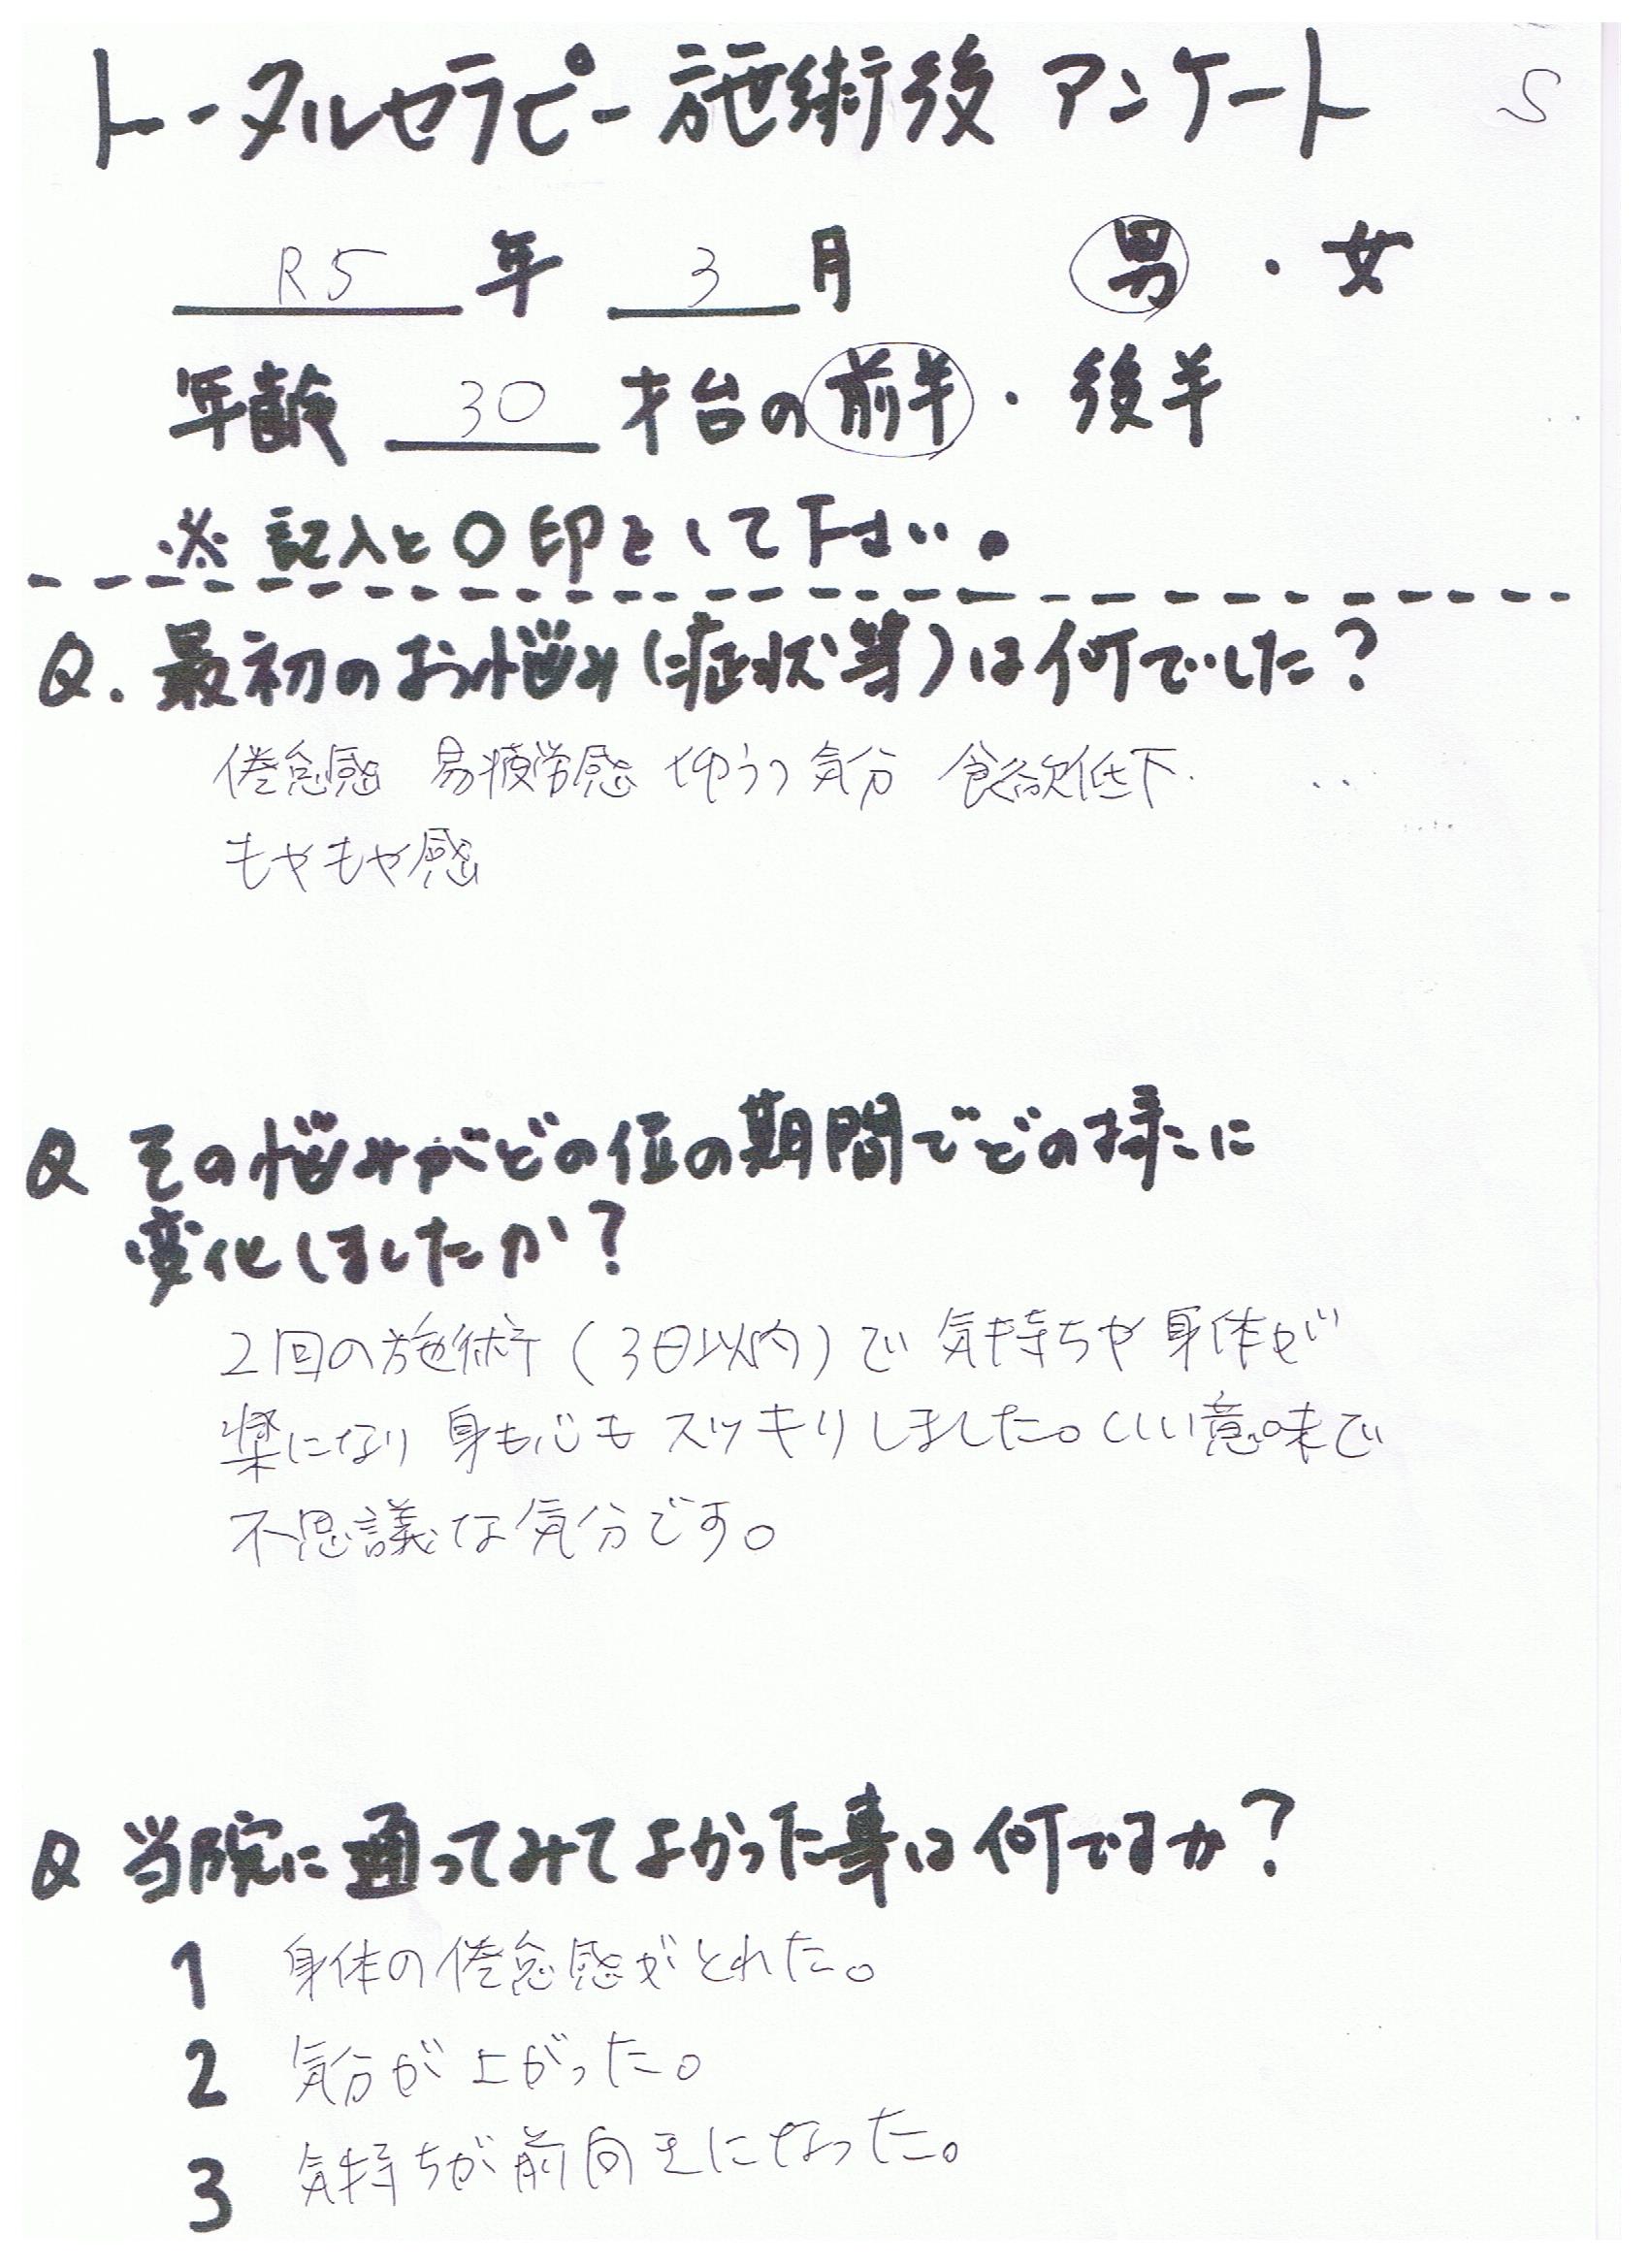 トータルセラピー施術後 アンケート S
R5 年 3 月 男 ・ 女
年齢 30 才台の 前半 ・ 後半
※ 記入と〇印をして下さい。
Q. 最初のお悩み(症状等)は何でした?
倦怠感 易疲労感 ゆううつ気分 食欲低下
もやもや感
Q その悩みがどの位の期間でどの様に
変化しましたか?
2回の施術(3日以内)で 気持ちや身体が
楽になり 身も心も スッキリしました。いい意味で
不思議な気分です。
Q 当院に通ってみてよかった事は何ですか?
1 身体の倦怠感がとれた。
2 気分が上がった。
3 気持ちが前向きになった。